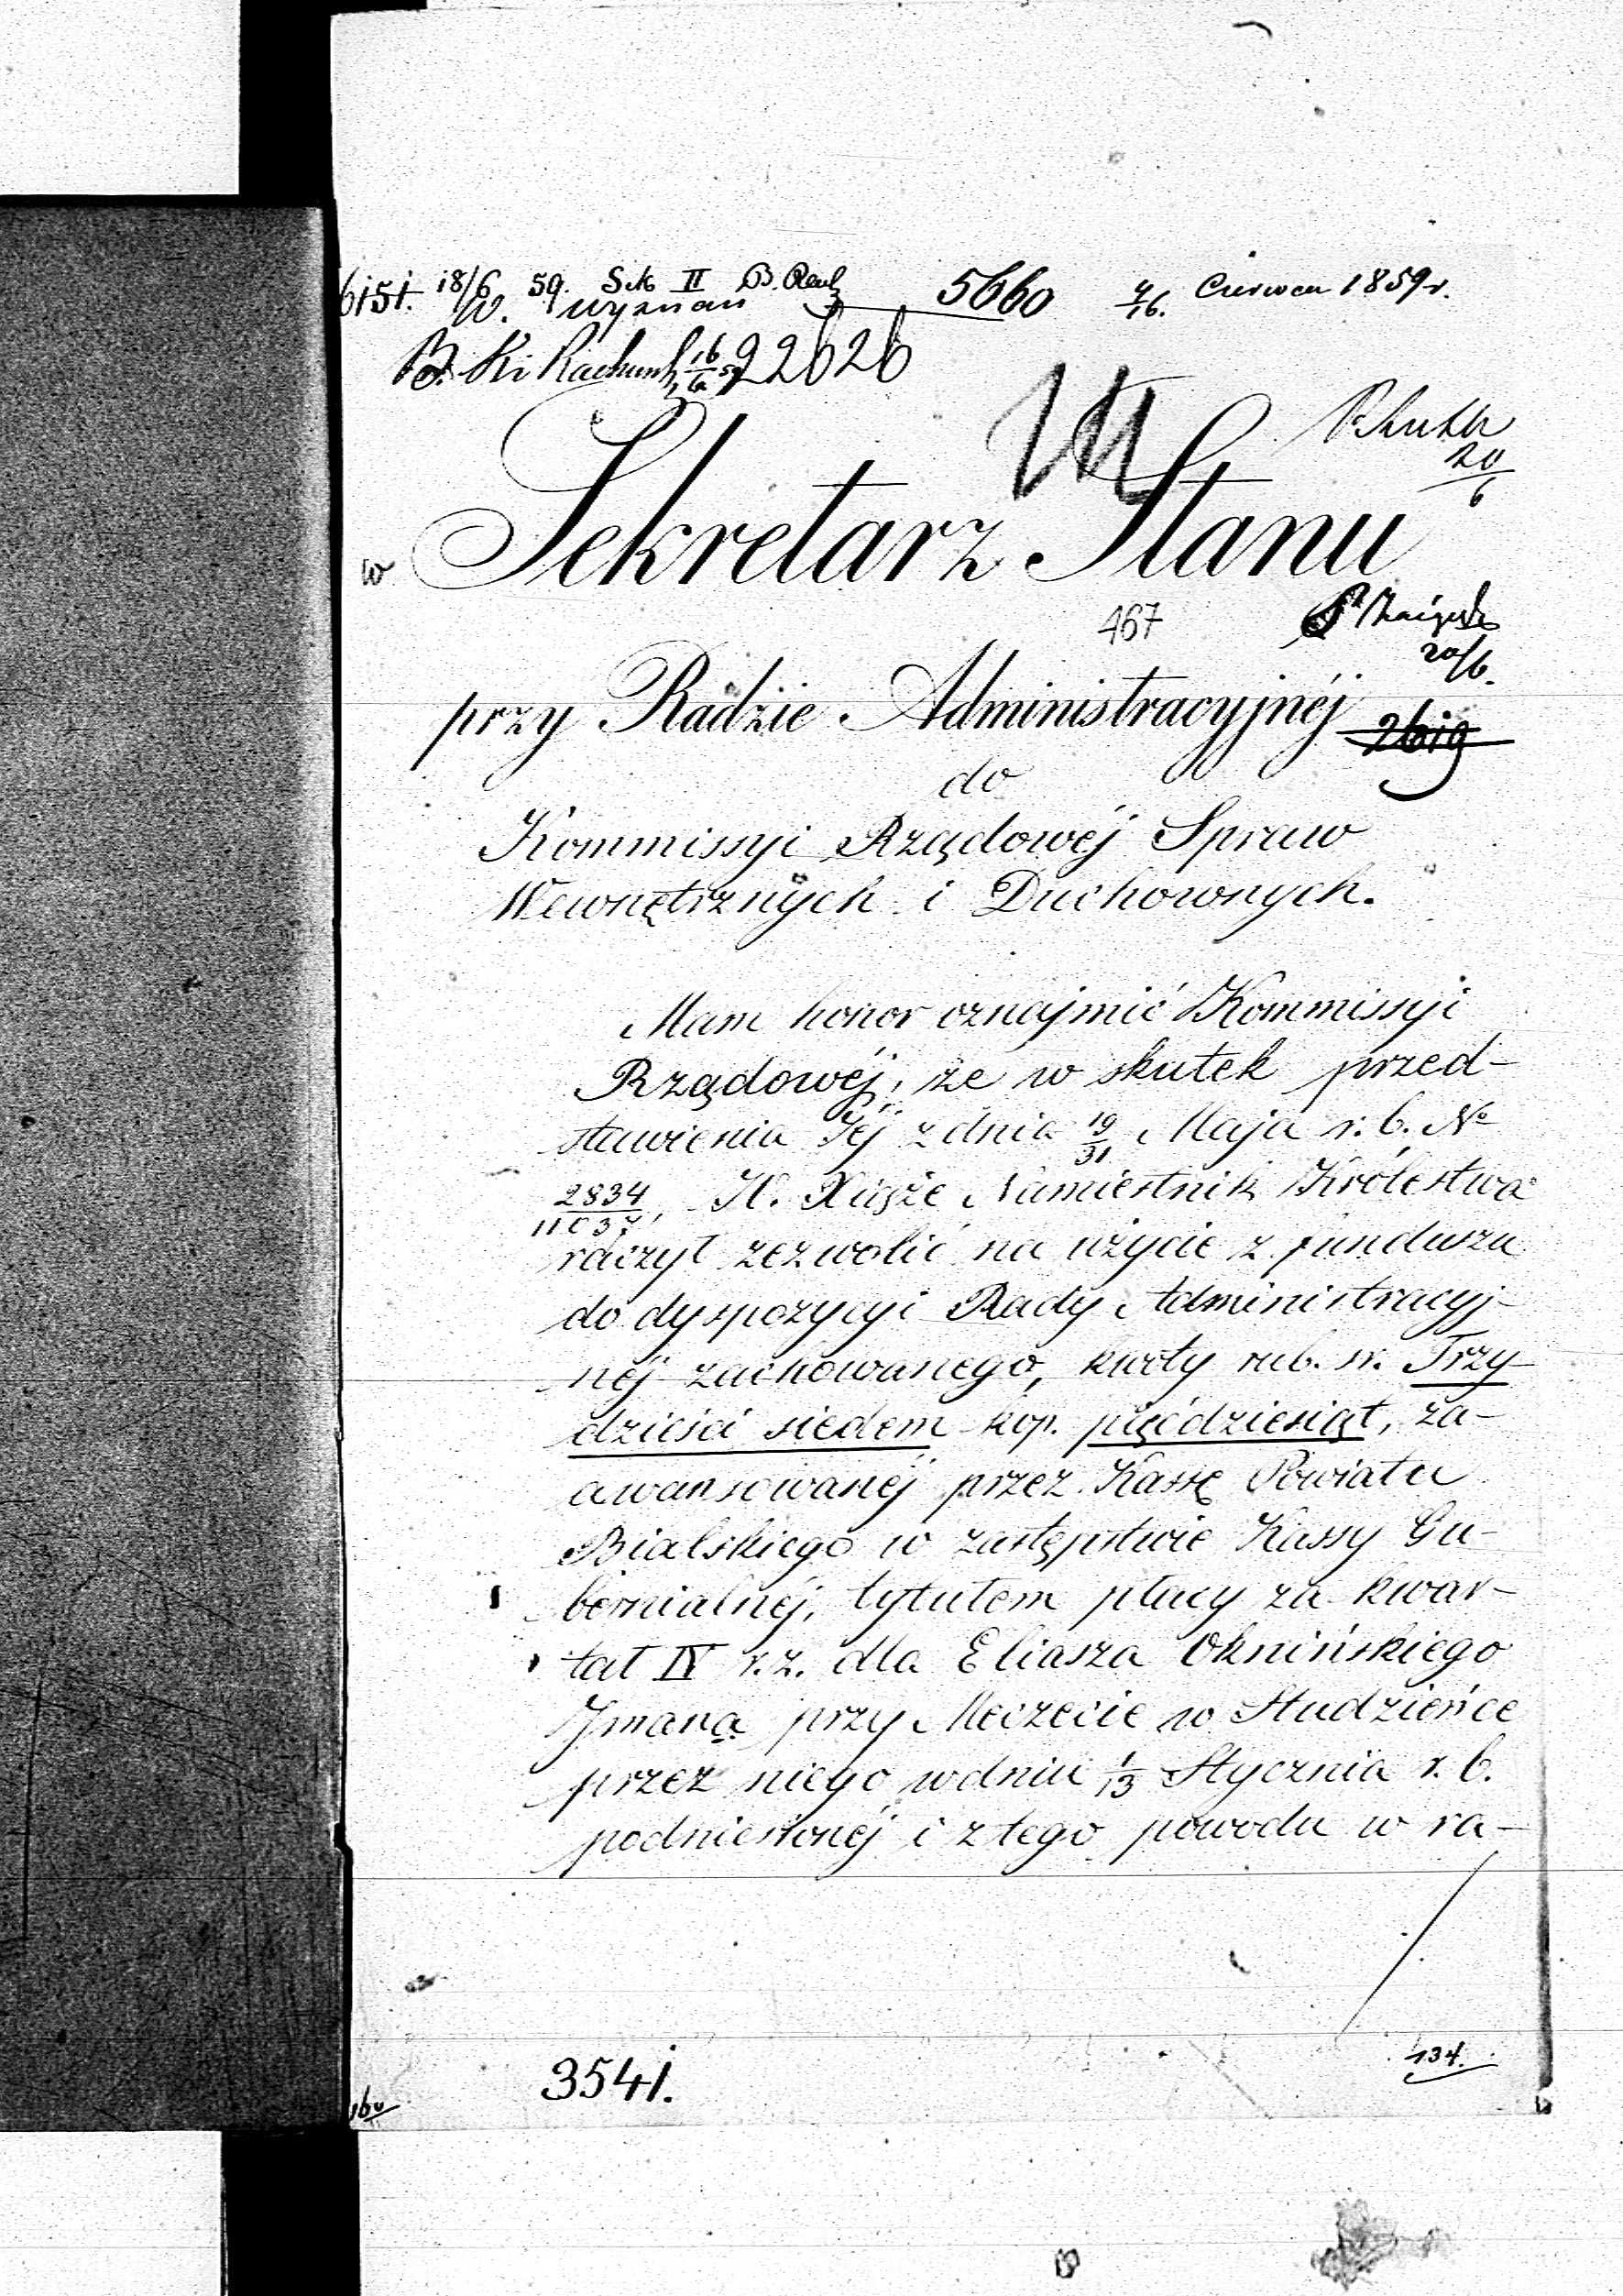 6151. 18/6 59. Sek II B. Rach 5660 4/16. Czerwca 1859 r.
W. Wyznań
B. Ki Rachunk 16/6 59 22626
20/6
Sekretarz Stanu
w
467
20/6.
przy Radzie Administracyjnéj
do
Kommissyi Rządowéj Spraw
Wewnętrznych i Duchownych.
Mam honor oznajmić Kommissyi
Rządowéj, że w skutek przed-
stawienia Jéj z dnia 19/31 Maja r. b. No
2834/11037, X. Xiąże Namiestnik Królestwa
raczył zezwolić na użycie z funduszu
do dyspozycyi Rady Administracyj-
néj zachowanego, kwoty rub. sr. Trzy
dzieści siedem kop. pięćdziesiąt, za-
awansowanéj przez Kassę Powiatu
Bialskiego w zastępstwie Kassy Gu-
bernialnéj, tytułem płacy za kwar-
tał IV r. z. dla Eliasza Oknińskiego
Jmana przy Meczecie w Studzieńce
przez niego w dniu 1/13 Stycznia r. b.
podniesionéj i z tego powodu w ra-
3541.
134.